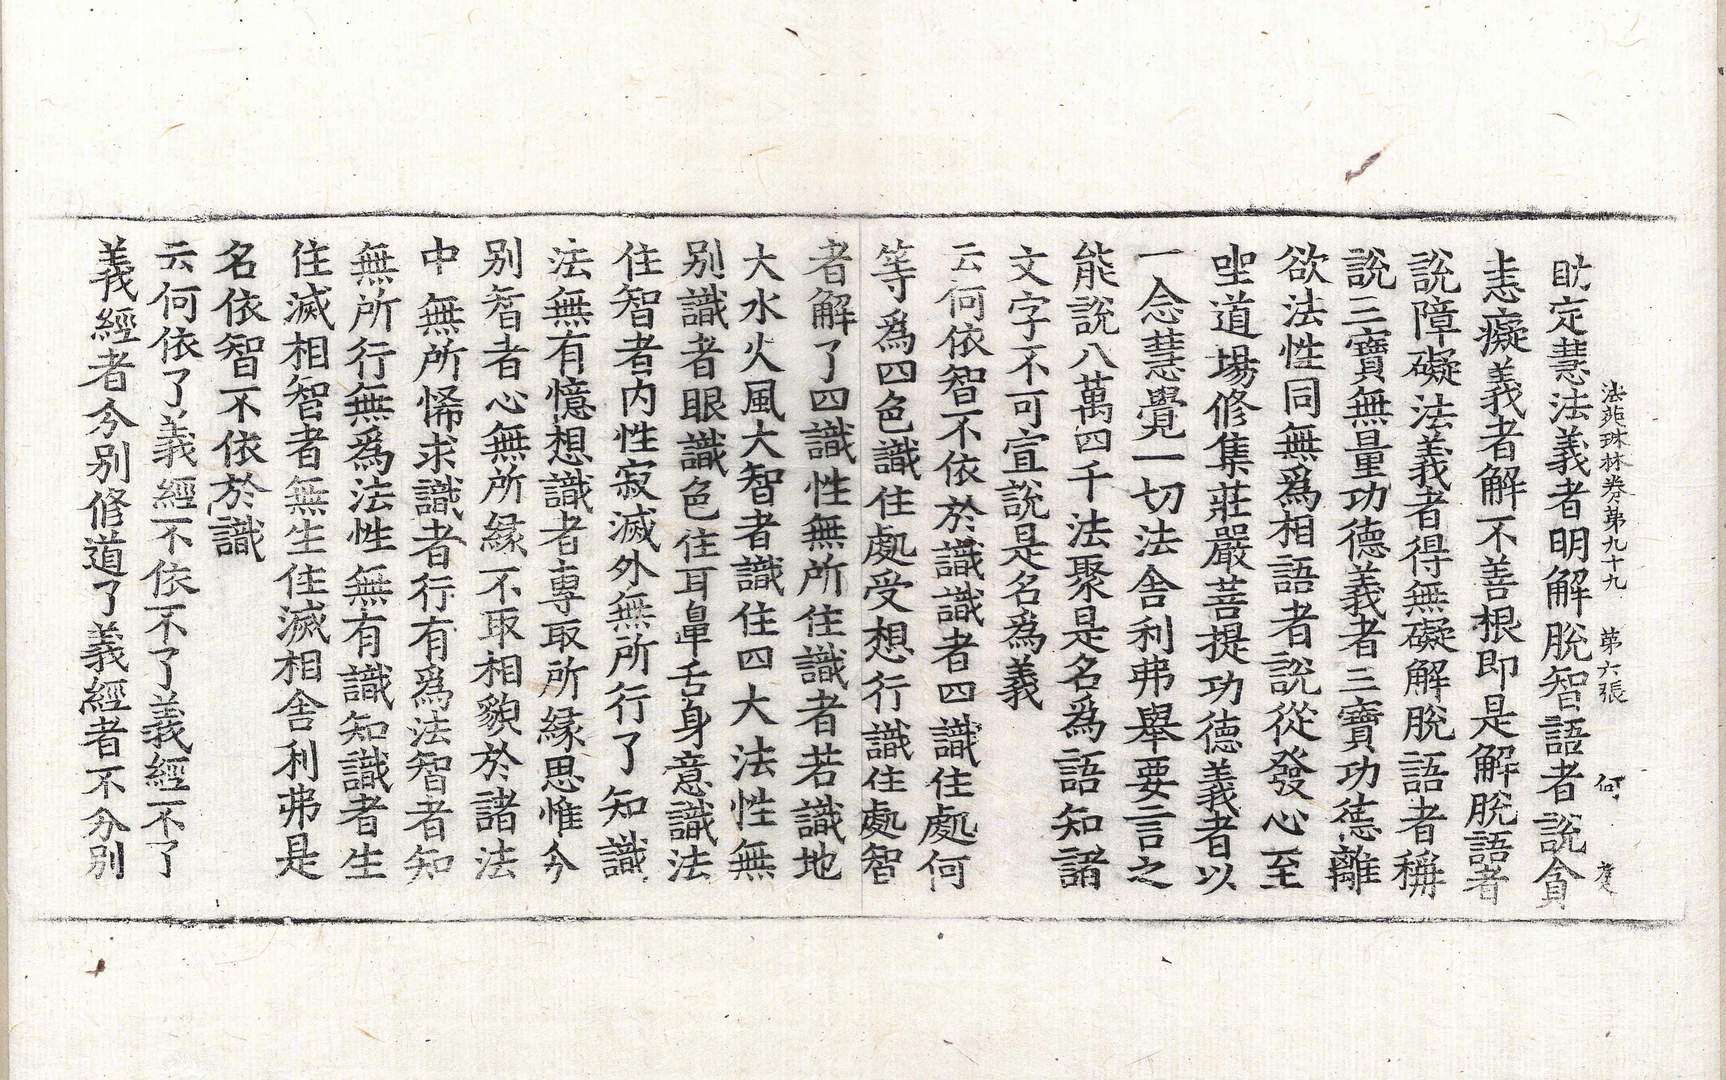 法苑珠林卷第九十九　第六張　何
助定慧法義者明解脫智語者說貪
恚癡義者解不善根即是解脫語者
說障礙法義者得無礙解脫語者稱
說三寶無量功德義者三寶功德離
欲法性同無爲相語者說從發心至
坐道場修集莊嚴菩提功德義者以
一念慧覺一切法舍利弗舉要言之
能說八萬四千法聚是名爲語知諸
文字不可宣說是名爲義
云何依智不依於識識者四識住處何
等爲四色識住處受想行識住處智
者解了四識性無所住識者若識地
大水火風大智者識住四大法性無
別識者眼識色住耳鼻舌身意識法
住智者内性寂滅外無所行了知識
法無有憶想識者專取所緣思惟分
別智者心無所緣不取相貌於諸法
中無所悕求識者行有爲法智者知
無所行無爲法性無有識知識者生
住滅相智者無生住滅相舍利弗是
名依智不依於識
云何依了義經不依不了義經不了
義經者分別修道了義經者不分別